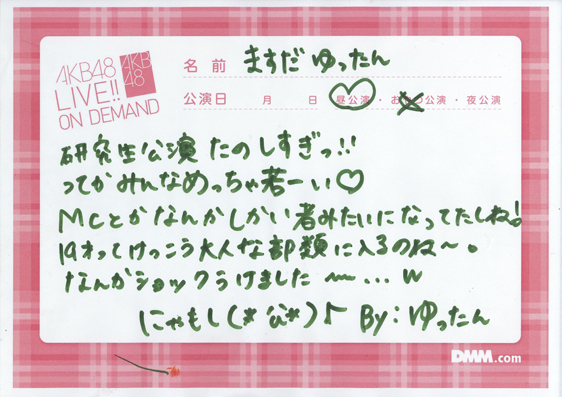 AKB48
LIVE!!
ON DEMAND
AKB
48
名前 ますだ ゆったん
公演日 月 日 昼公演・お 公演・夜公演
研究生公演 たのしすぎっ!!
ってかみんなめっちゃ若ーい♡
MCとかなんかしかい者みたいになってたしね!
19才ってけっこう大人な部類に入るのね〜。
なんかショックうけました〜…w
にゃもし(*'ω'*)♪ By:ゆったん
DMM.com